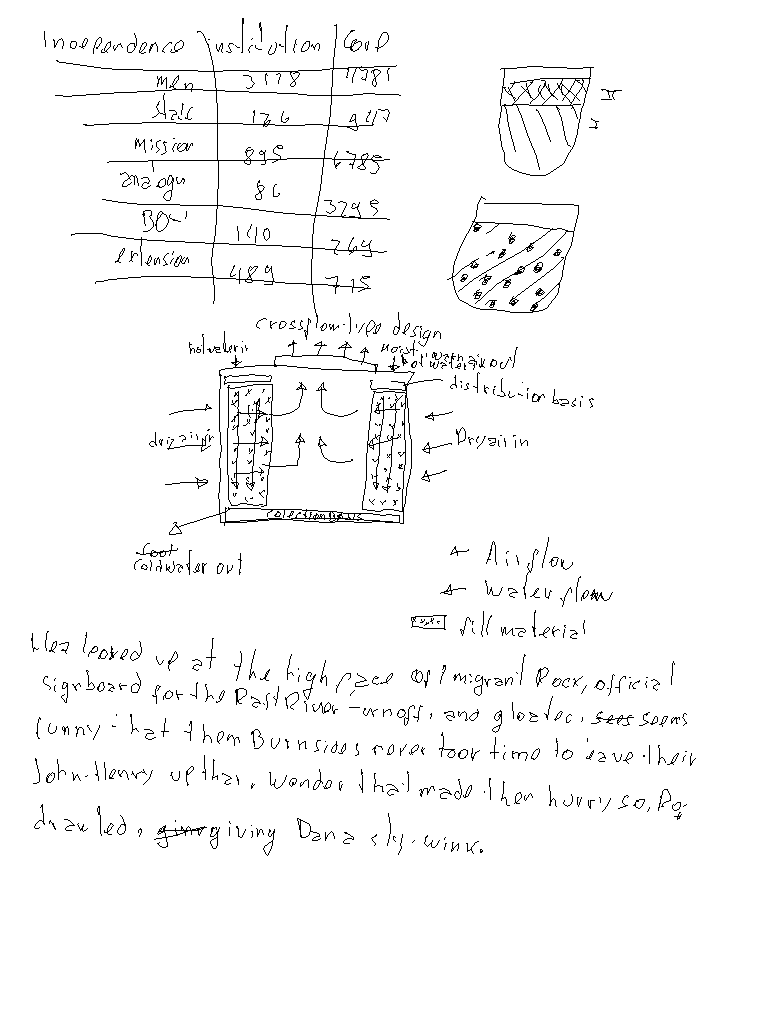 Independence institution Coup
men 3178 4781
static 126 947
mission 895 6785
analogu 86 3295
BOY 140 269
extension 489 715
II
I
crossflow-type design
hotwaterin
distribution basis
Dryairin
colectionbasis
Coldwater out
Air flow
Water flow
fill material
looked up at the high face of Imigrant Rock, official
signboard for the Raft River, and gloated, seems
funny that them Burnsides never took time to leave their
John-Henry up thar. Wonder that made them hurry so, Pa
drawled, giving Dana sly wink.